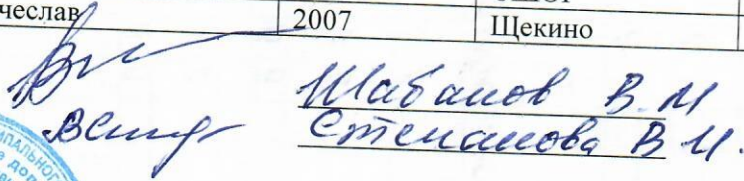 чеслав 2007 Щекино
Шабанов В.М
Степанова В.И.